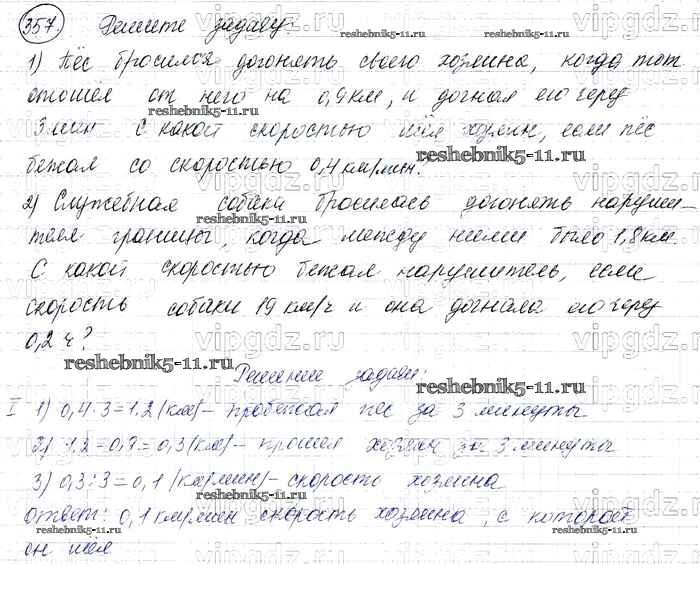 357. Решите задачу:
reshebnik5-11.ru
1) Пёс бросился догонять своего хозяина, когда тот
отошёл от него на 0,9 км, и догнал его через
reshebnik5-11.ru
3 мин С какой скоростью шёл хозяин, если пёс
бежал со скоростью 0,4 км/мин.
reshebnik5-11.ru
2) Служебная собака бросилась догонять наруши-
reshebnik5-11.ru
теля границы, когда между ними было 1,8 км
С какой скоростью бежал нарушитель, если
скорость собаки 19 км/ч и она догнала его через
reshebnik5-11.ru
0,2 ч?
reshebnik5-11.ru
Решение задачи:
reshebnik5-11.ru
I 1) 0,4·3=1.2 (км) – пробежал пёс за 3 минуты
2) 1,2-0,9=0,3 (км) – прошел хозяин за 3 минуты
3) 0,3:3=0,1 (км/мин) – скорость хозяина
reshebnik5-11.ru
ответ: 0,1 км/мин скорость хозяина, с которой
он шёл
reshebnik5-11.ru
vipgdz.ru